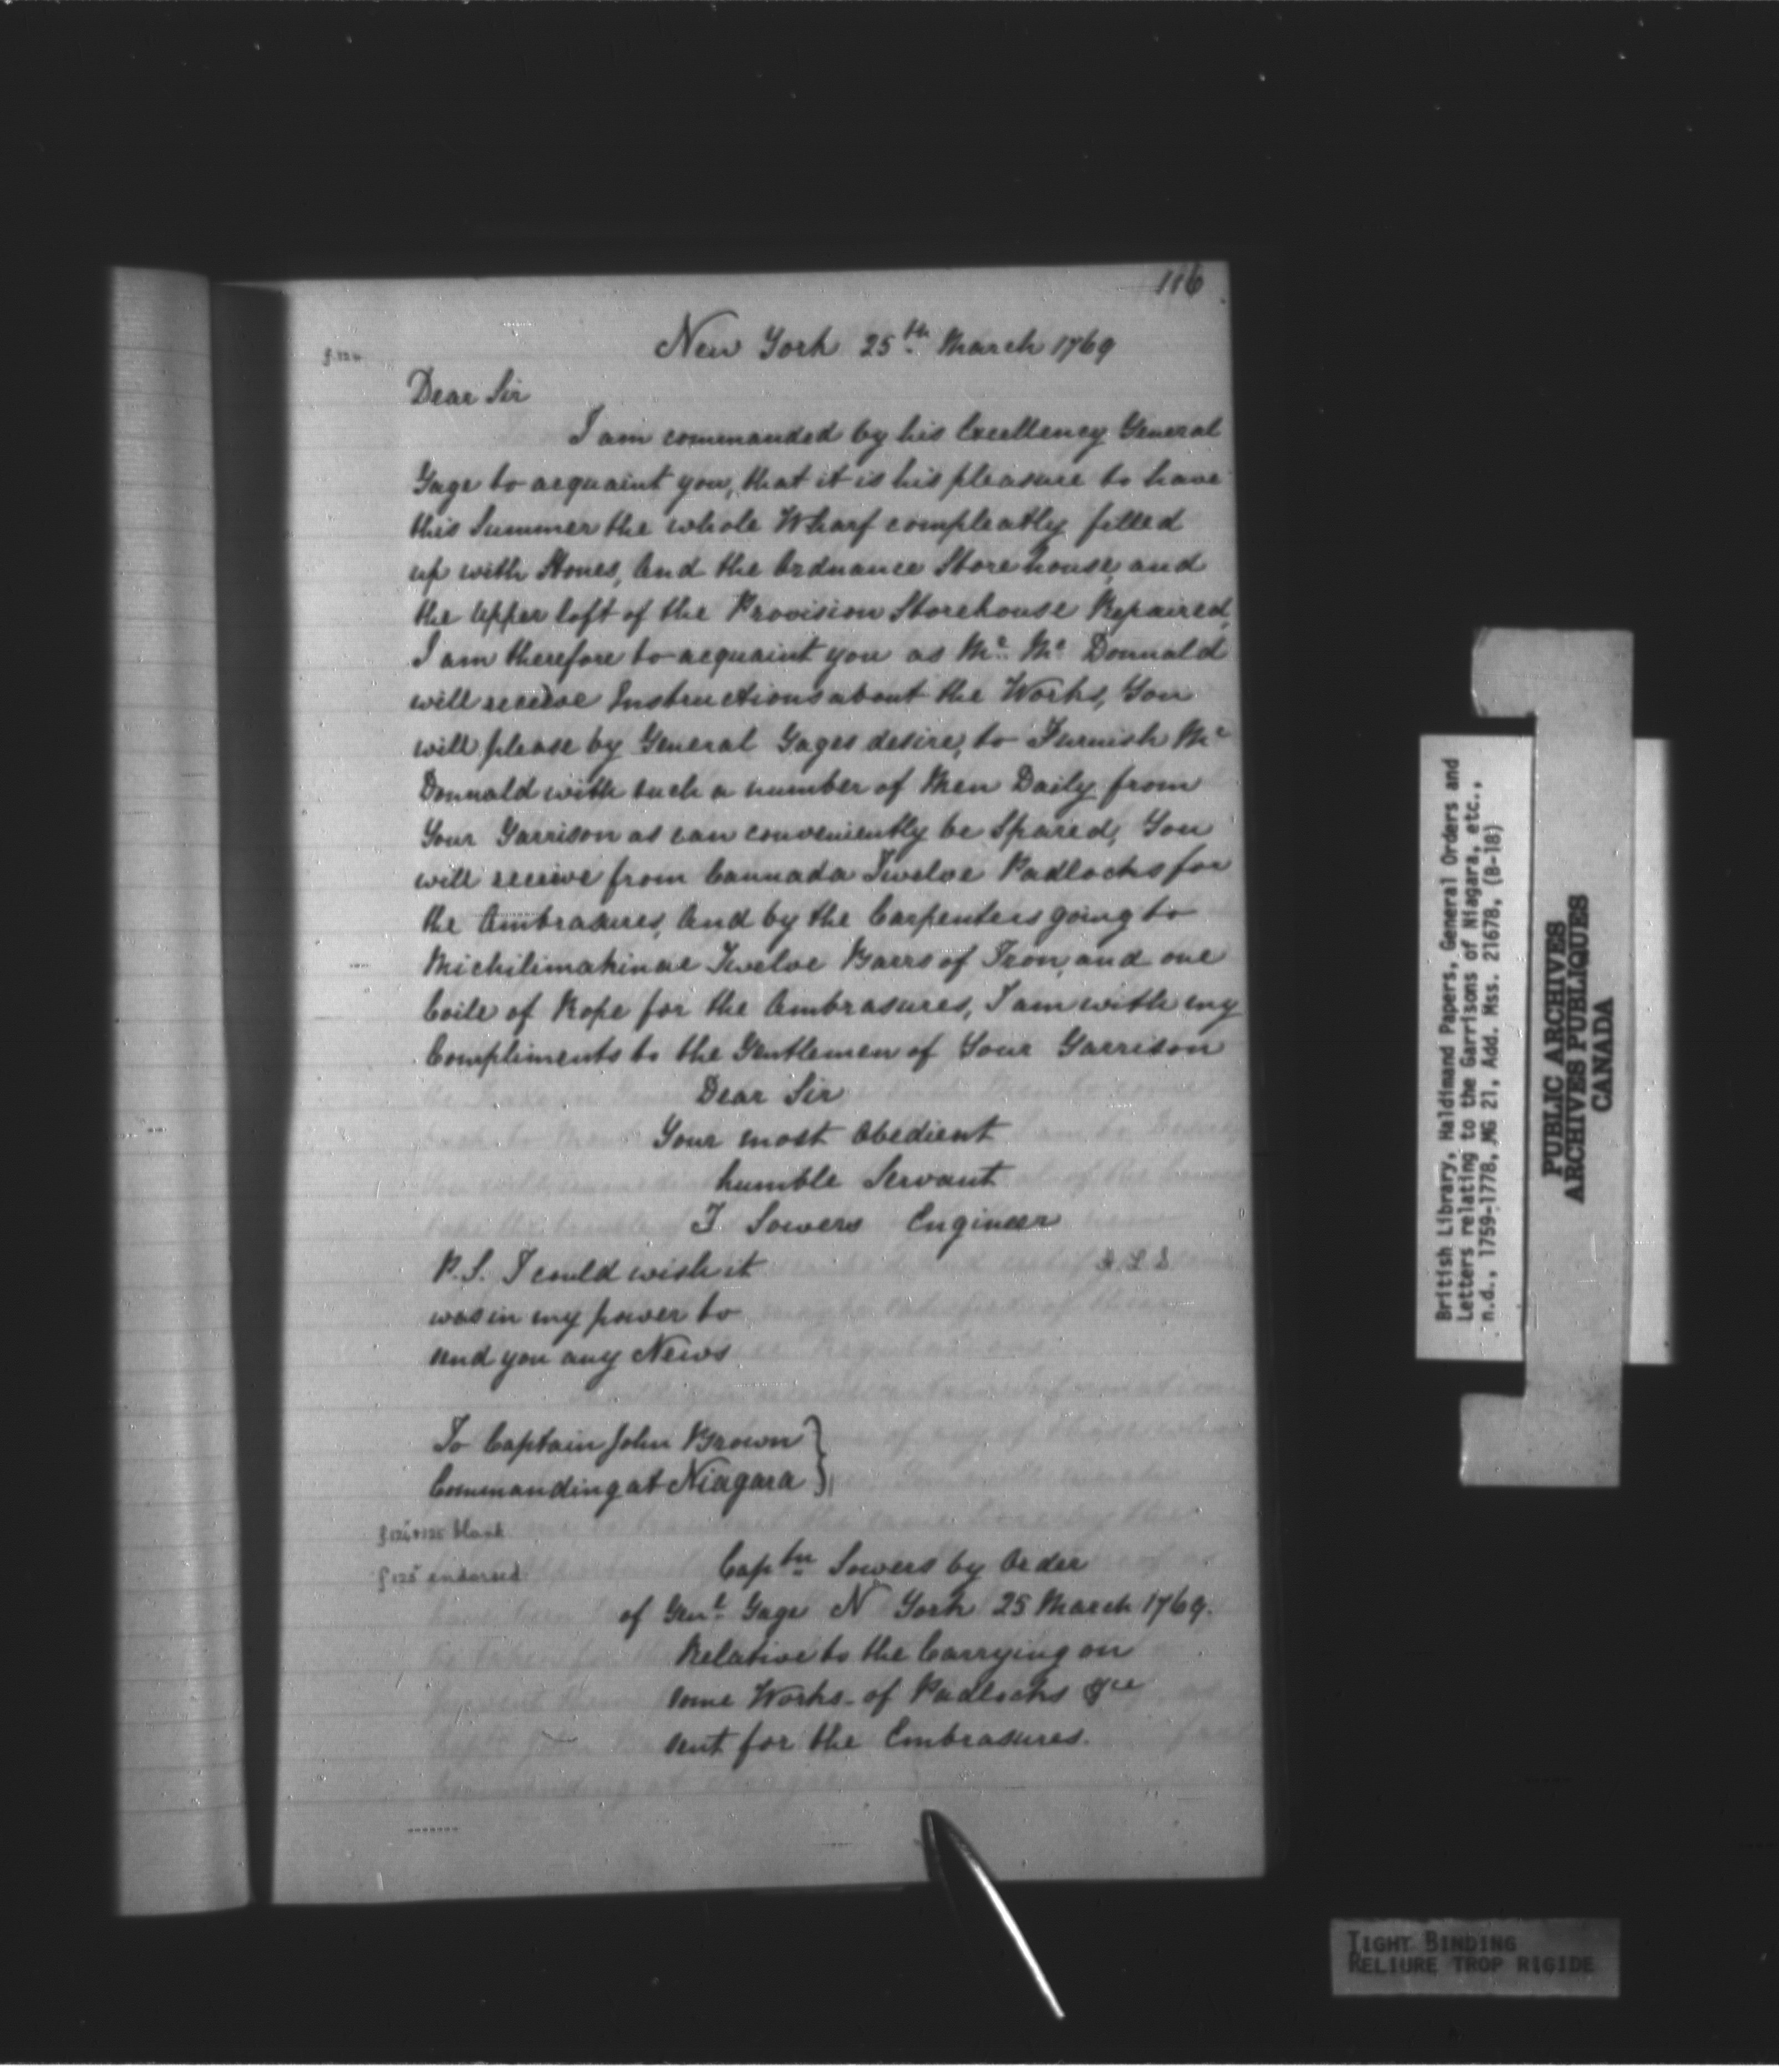 116
f.124
New York 25th March 1769
Dear Sir
I am commanded by his Excellency General
Gage to acquaint you, that it is his pleasure to have
this Summer the whole Wharf compleatly filled
up with Stones, And the Ordnance Storehouse, and
the Upper loft of the Provision Storehouse Repaired,
I am therefore to acquaint you as Mr. Mc Donnald
will receive Instructions about the Works, You
will please by General Gages desire, to Furnish Mc
Donnald with such a number of Men Daily from
Your Garrison as can conveniently be Spared, You
will receive from Cannada Twelve Padlocks for
the Ambrasures, And by the Carpenters going to
Michilimakinac Twelve Barrs of Iron, and one
Coile of Rope for the Ambrasures, I am with my
Compliments to the Gentlemen of Your Garrison
Dear Sir
Your most Obedient
humble Servant
T Sowers Engineer
P.S. I could wish it
was in my power to
send you any News
To Captain John Brown
Commanding at Niagara
blank
f 125 endorsed
Captn Sowers by Order
of Genl Gage N York 25 March 1769.
Relative to the Carrying on
some Works - of Padlocks &ce
sent for the Embrasures.
British Library, Haldimand Papers, General Orders and
Letters relating to the Garrisons of Niagara, etc.,
n.d., 1759-1778, MG 21, Add. Mss. 21678, (B-18)
PUBLIC ARCHIVES
ARCHIVES PUBLIQUES
CANADA
TIGHT BINDING
RELIURE TROP RIGIDE